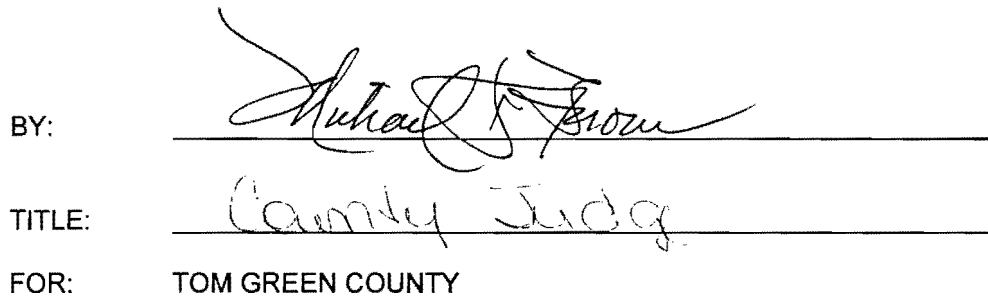 BY: Michael D. Brown
TITLE: County Judg
FOR: TOM GREEN COUNTY